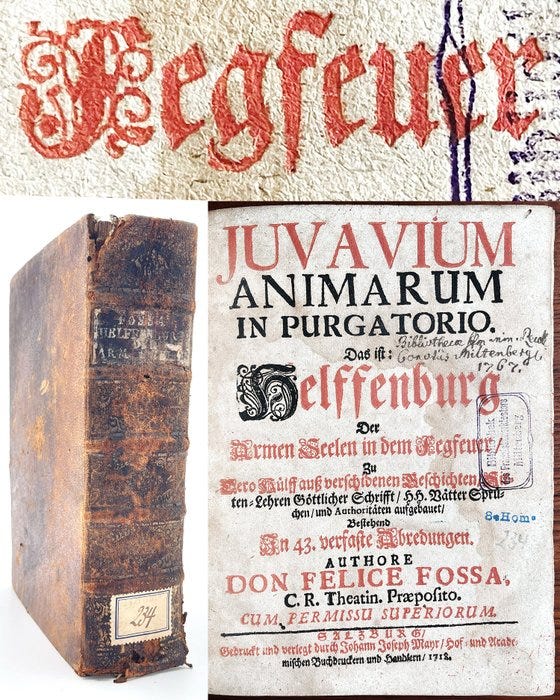 Fegfeuer
FOSSA
HELFFENBURG
D
ARM
234
JUVAVIUM
ANIMARUM
IN PURGATORIO.
Das ist:
Bibliotheca
Conv9 Miltenberg.
1767.
Helffenburg
Der
Armen Seelen in dem Fegfeuer/
Zu
Dero Hülff auß verschidenen Geschichten/
ten-Lehren Göttlicher Schrifft/ HH. Vätter Sprü-
chen/ und Authoritäten aufgebauet/
Bestehend
In 43. verfaste Abredungen.
AUTHORE
DON FELICE FOSSA,
C. R. Theatin. Præposito.
CUM PERMISSU SUPERIORUM.
SALZBURG/
Gedruckt und verlegt durch Johann Joseph Mayr/ Hof- und Acade-
mischen Buchdruckern und Handlern/ 1718.
Bibliothek
des Franziskanerklosters
Miltenberg
8° Hom.
234